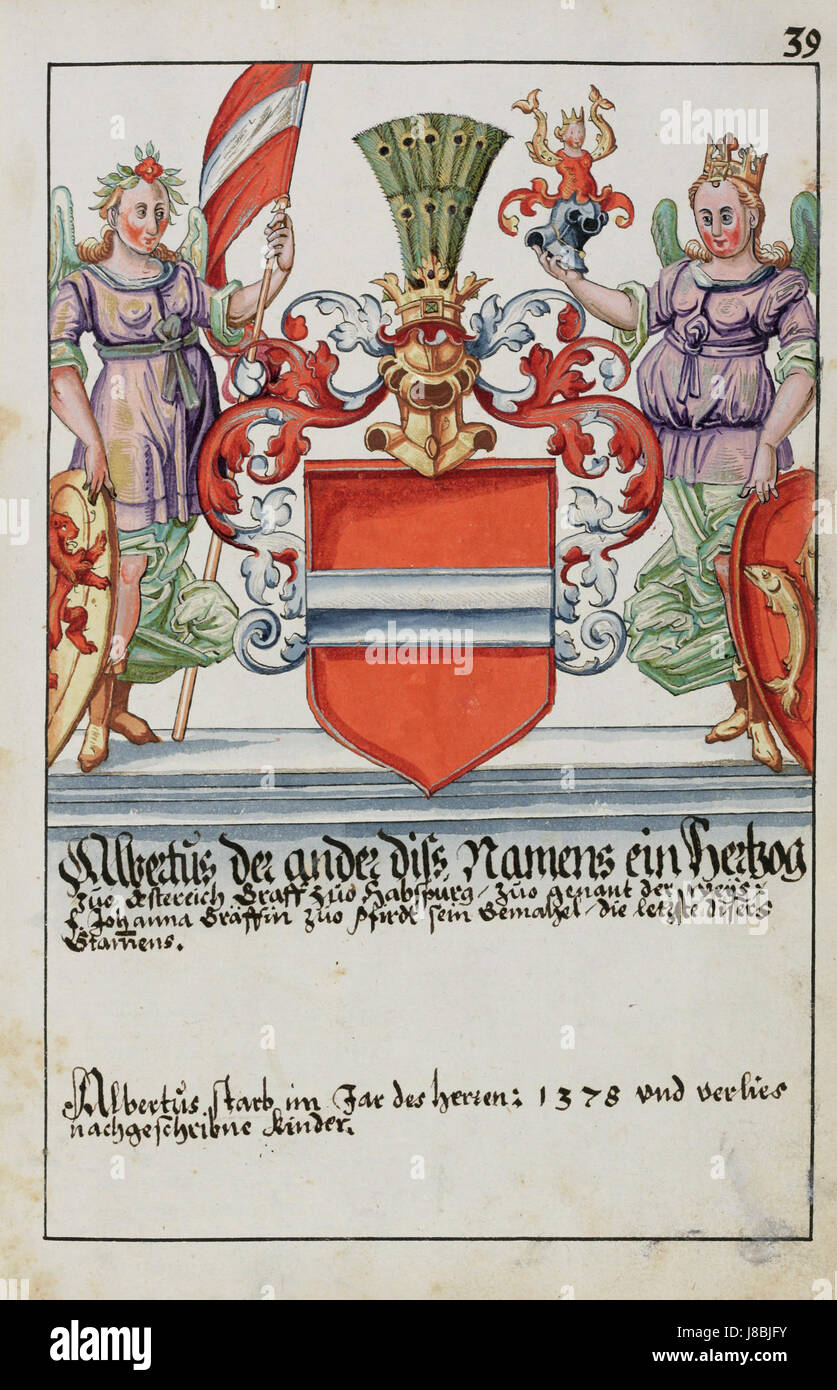 39
Albertus der ander diss Namens ein Hertzog
zuo Östereich Graff zuo Habspurg, zuo genant der Weys:
F. Johanna Gräffin zuo Pfirdt sein Gemahel, die letzte disers
Stamens.
Albertus starb im Jar des Herren: 1378 und verlies
nachgeschribne Kinder.
alamy
alamy
Image ID: J8BJFY
www.alamy.com